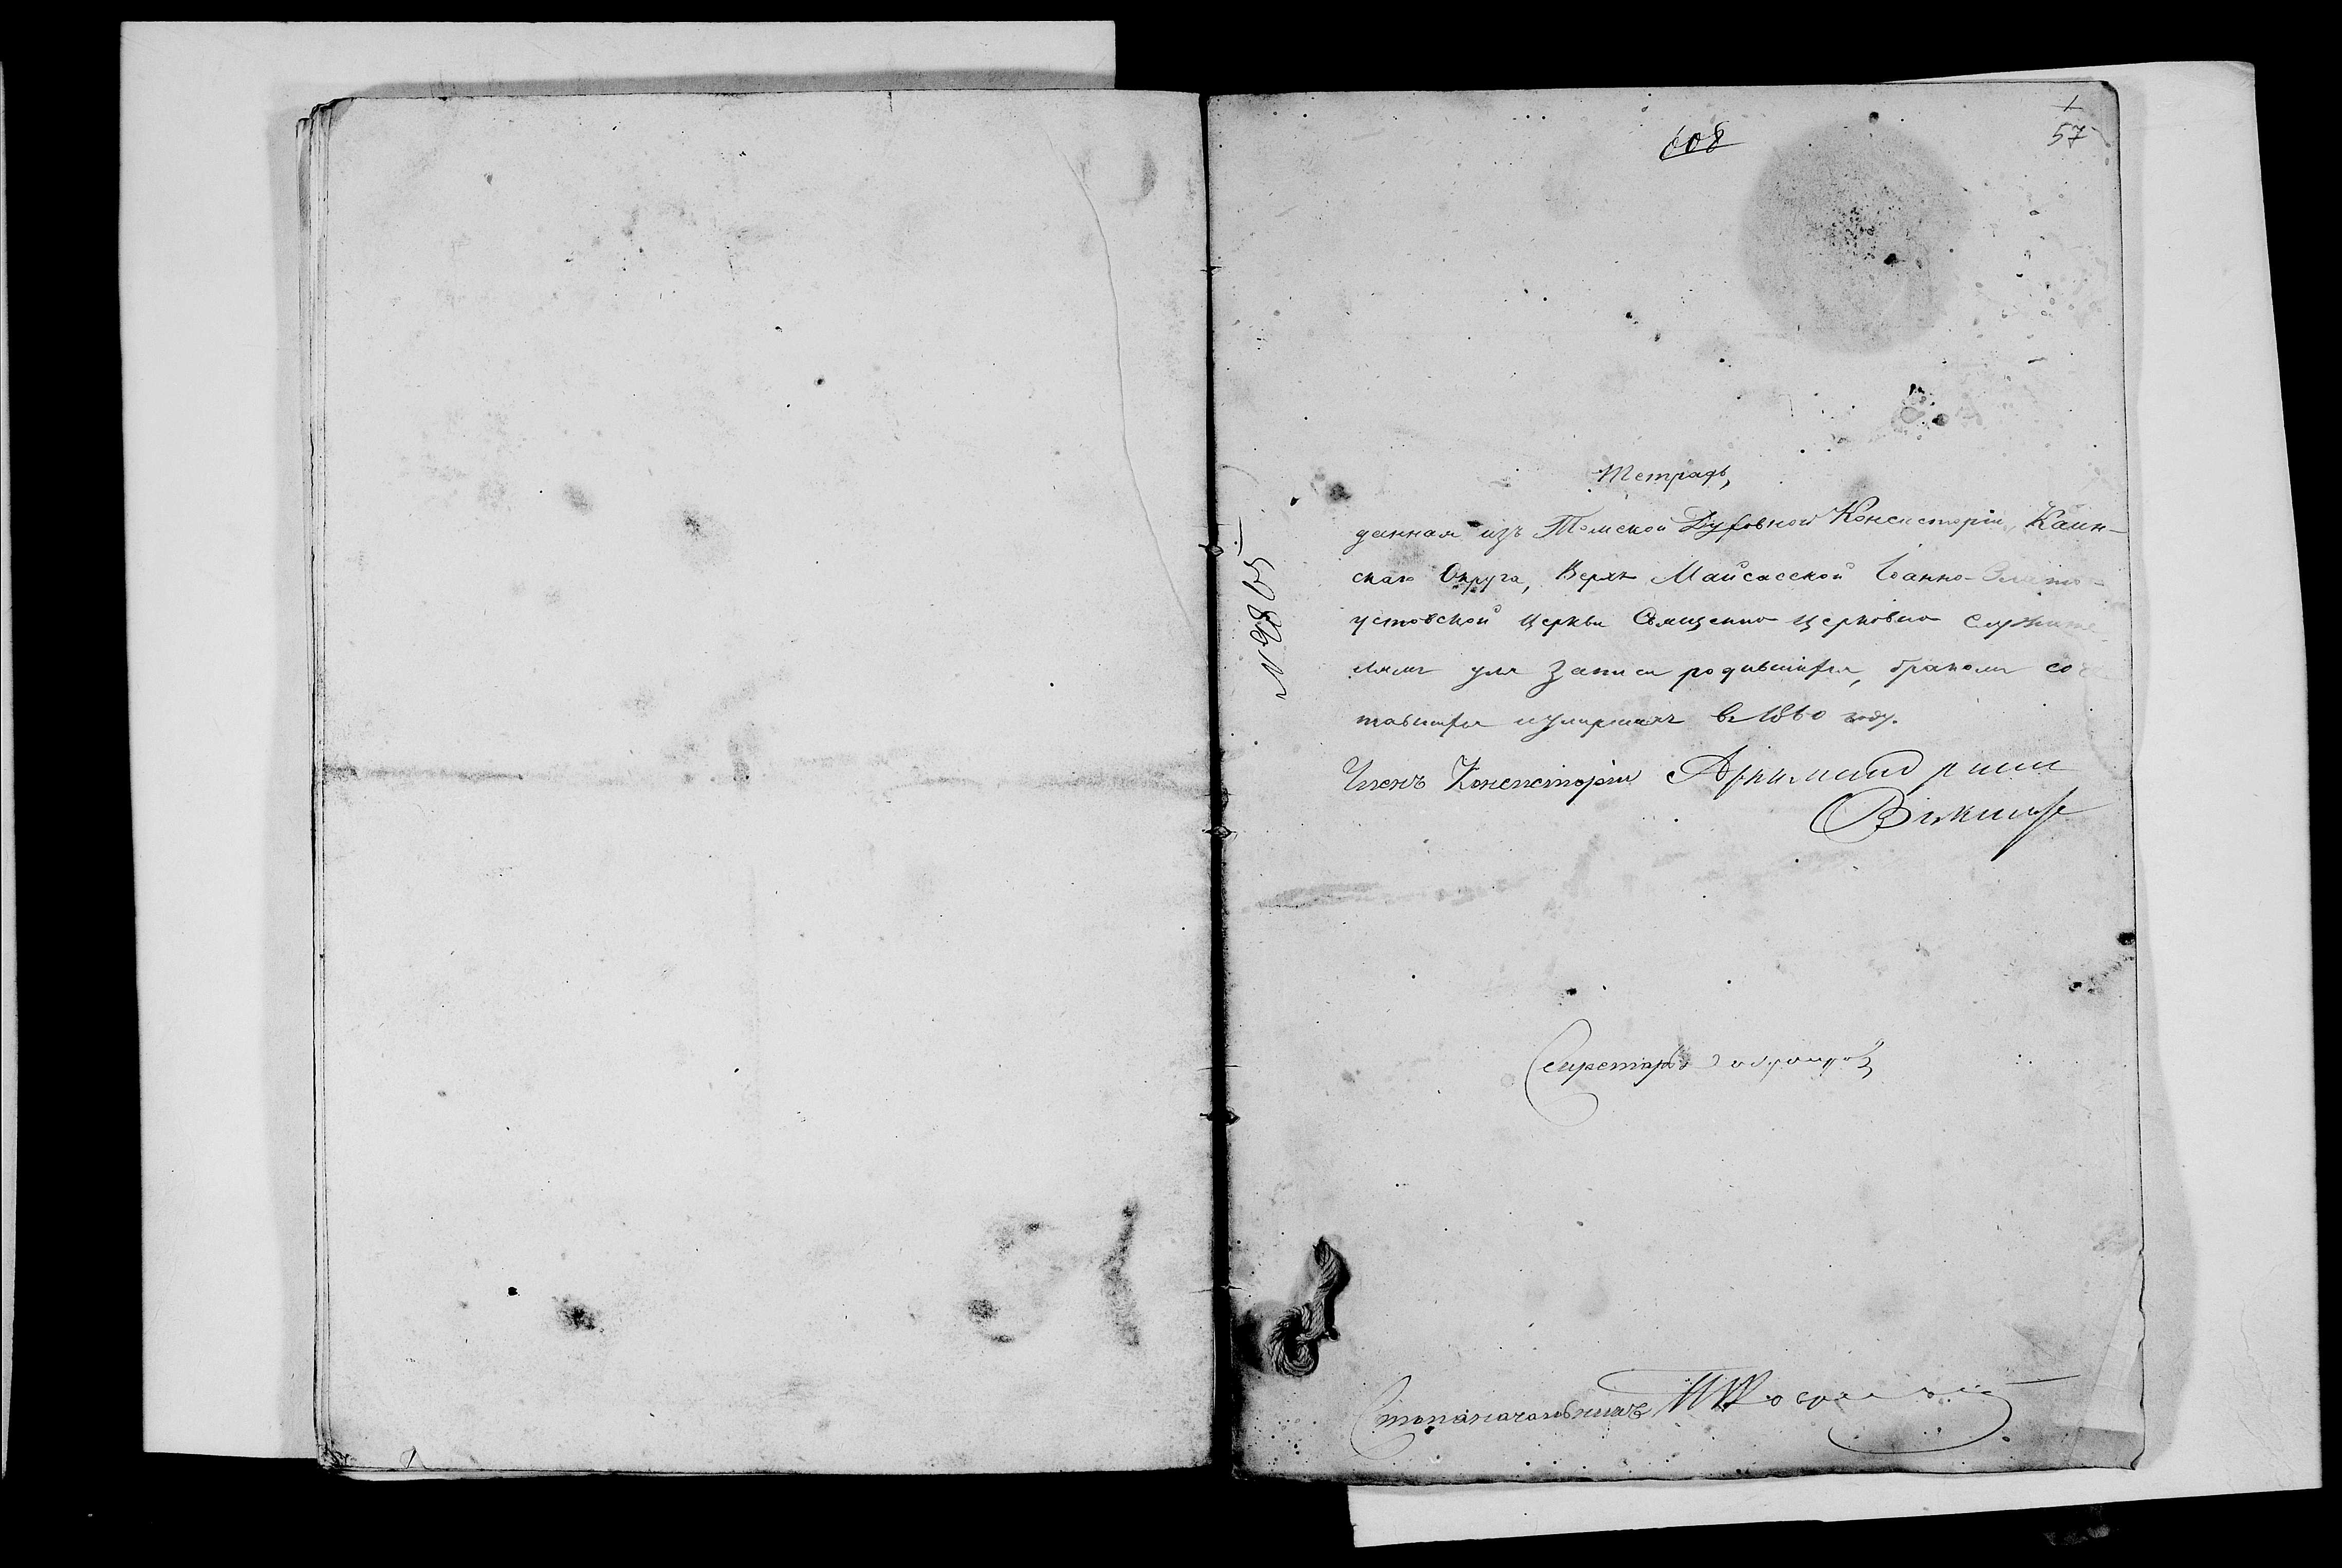 608
1
57
Тетрадь,
данная изъ Томской Духовной Консисторіи, Каин-
скаго Округа, Верхъ Майсасской Іоанно-Злато-
устовской церкви Священно церковно служите-
лямъ для записи родившихся, бракомъ соче
тавшихся и умершихъ въ 1860 году.
Членъ Консисторіи Архимандритъ
Секретарь
Столоначальникъ